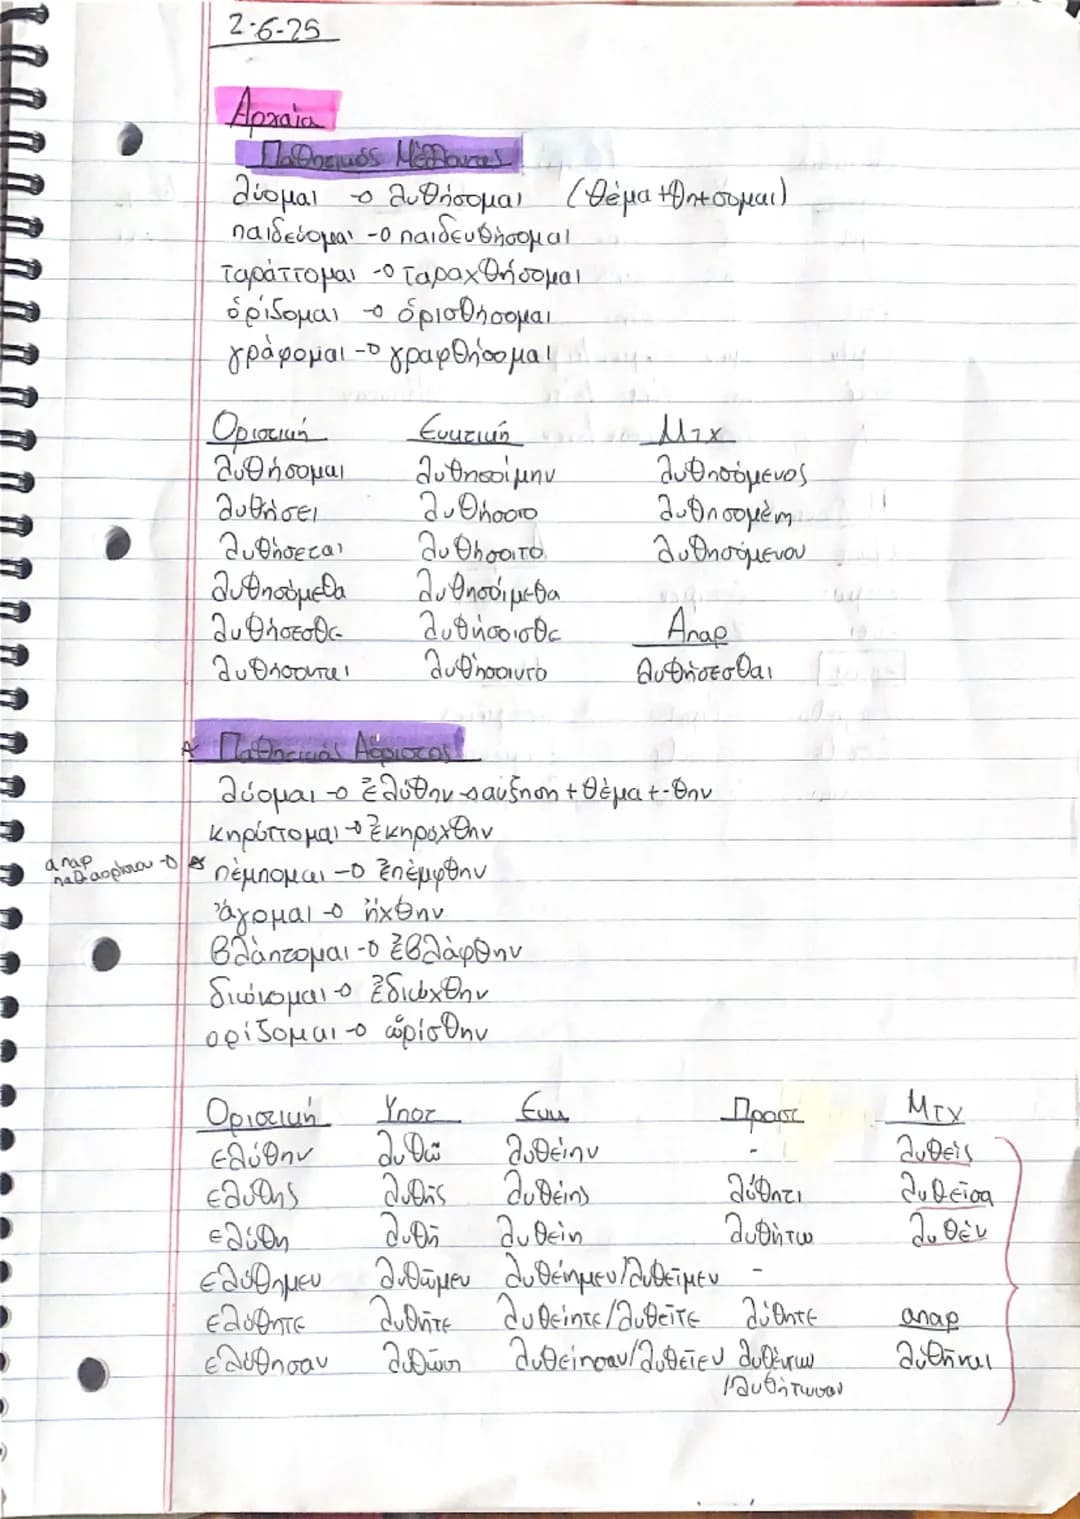 2-6-25
Αρχαία
Παθητικός Μέλλοντας
λύομαι → λυθήσομαι (θέμα +θη+σομαι)
παιδεύομαι → παιδευθήσομαι
ταράττομαι → ταραχθήσομαι
ὁρίζομαι → ὁρισθήσομαι
γράφομαι → γραφθήσομαι
Οριστική Ευκτική Μτχ
λυθήσομαι λυθησοίμην λυθησόμενος
λυθήσει λυθήσοιο λυθησομένη
λυθήσεται λυθήσοιτο λυθησόμενον
λυθησόμεθα λυθησοίμεθα
λυθήσεσθε λυθήσοισθε Απαρ
λυθήσονται λυθήσοιντο λυθήσεσθαι
Α' Παθητικός Αόριστος
λύομαι → ἐλύθην → αύξηση + θέμα + -θην
κηρύττομαι → ἐκηρύχθην
απαρ
παθ αορίστου →
πέμπομαι → ἐπέμφθην
ἄγομαι → ἤχθην
βλάπτομαι → ἐβλάφθην
διώκομαι → ἐδιώχθην
ορίζομαι → ὡρίσθην
Οριστική Υποτ Ευκ Προστ Μτχ
ελύθην λυθῶ λυθείην - λυθείς
ελύθης λυθῇς λυθείης λύθητι λυθεῖσα
ελύθη λυθῇ λυθείη λυθήτω λυθέν
ελύθημεν λυθῶμεν λυθείημεν/λυθεῖμεν -
ελύθητε λυθῆτε λυθείητε/λυθεῖτε λύθητε απαρ
ελύθησαν λυθῶσι λυθείησαν/λυθεῖεν λυθέντων λυθῆναι
/λυθήτωσαν